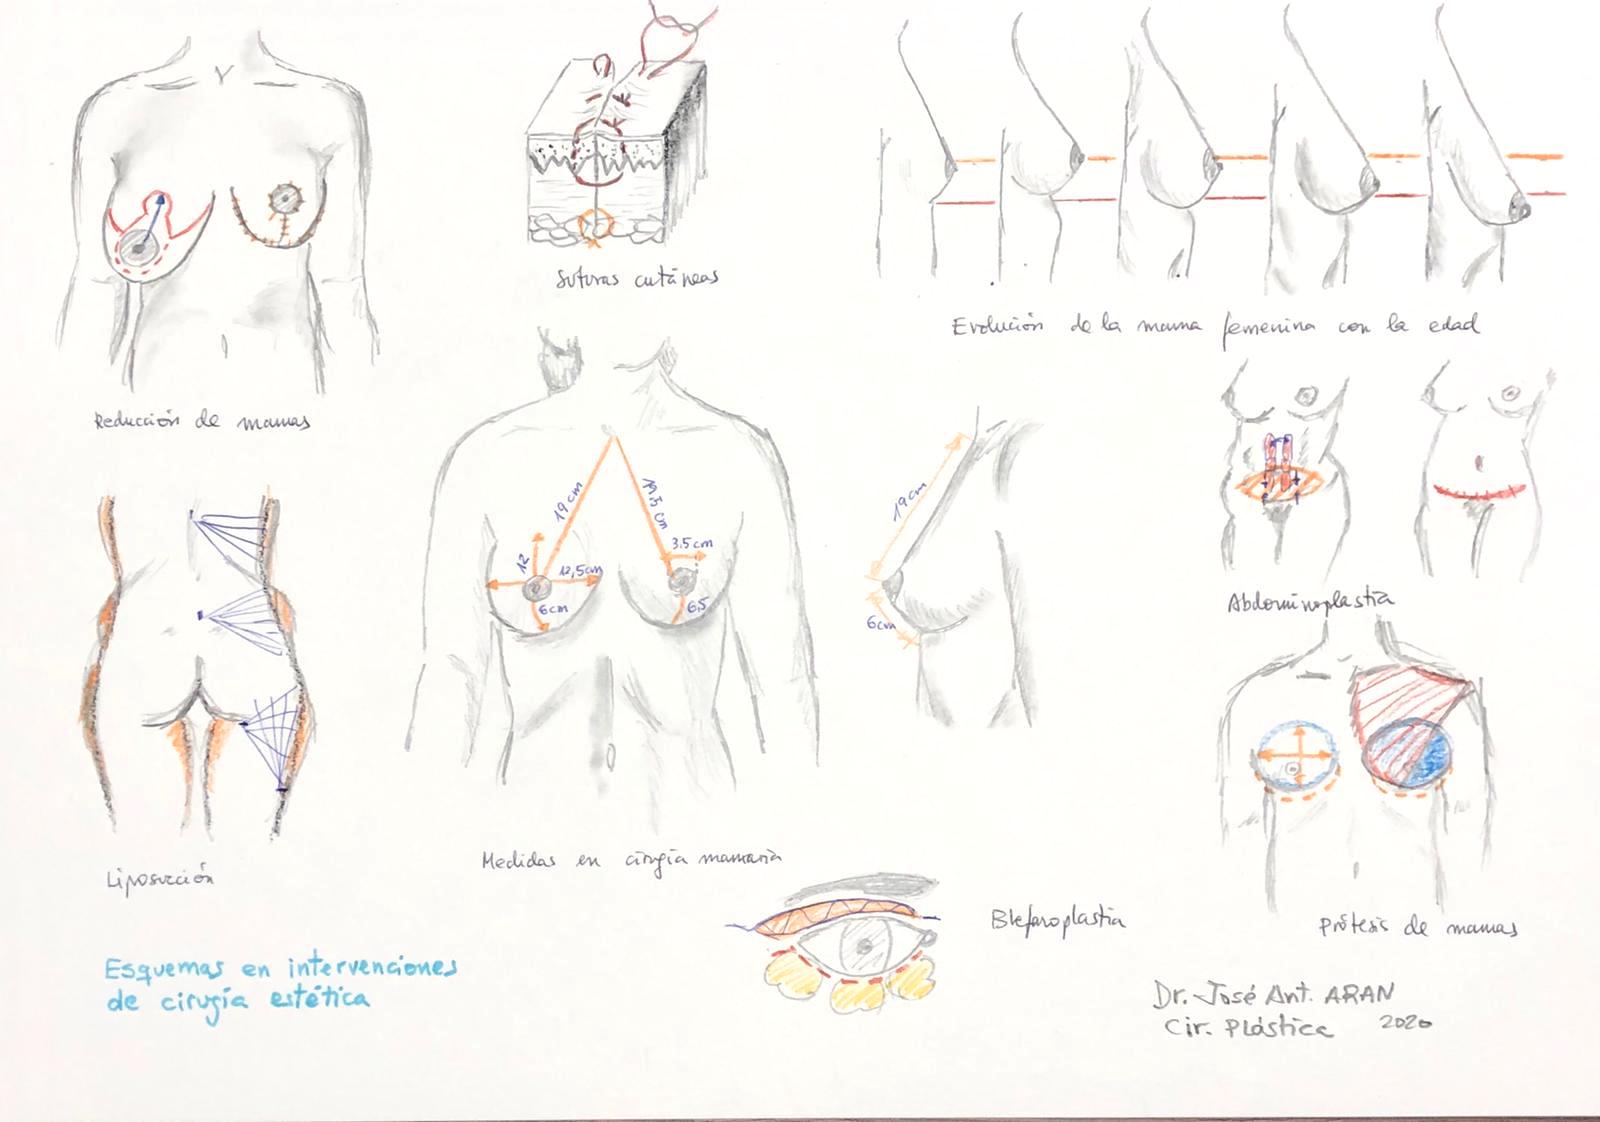 Reducción de mamas
Suturas cutáneas
Evolución de la mama femenina con la edad
19 cm
19,5 cm
12
12,5cm
6cm
3.5 cm
6,5
19 cm
6cm
Abdominoplastia
Liposucción
Medidas en cirugía mamaria
Blefaroplastia
Prótesis de mamas
Esquemas en intervenciones
de cirugía estética
Dr. José Ant. ARAN
Cir. Plástica 2020